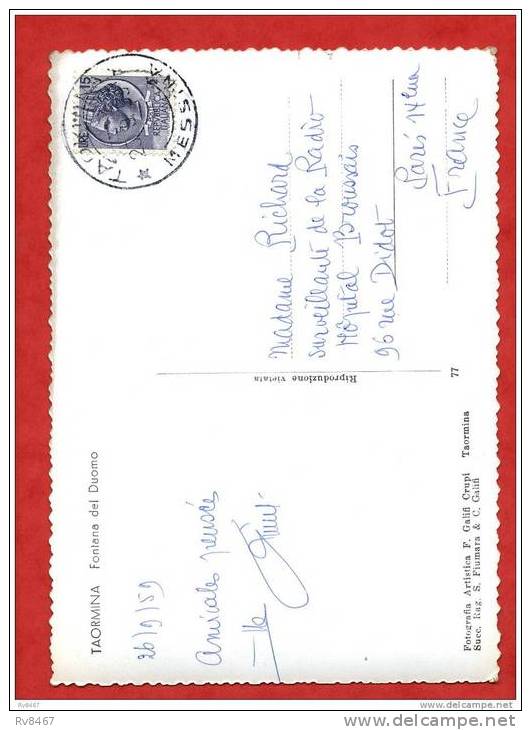 TAORMINA Fontana del Duomo
26/9/59
Amicales pensées
Fotografia Artistica F. Galifi Crupi Taormina
Succ. Rag. S. Fiumara & C. Galifi
Riproduzione vietata
77
MESSINA
Madame Richard
Surveillante de la Radio
Hôpital Broussais
96 rue Didot
Paris 14ème
France
Rv8467
delcampe.net